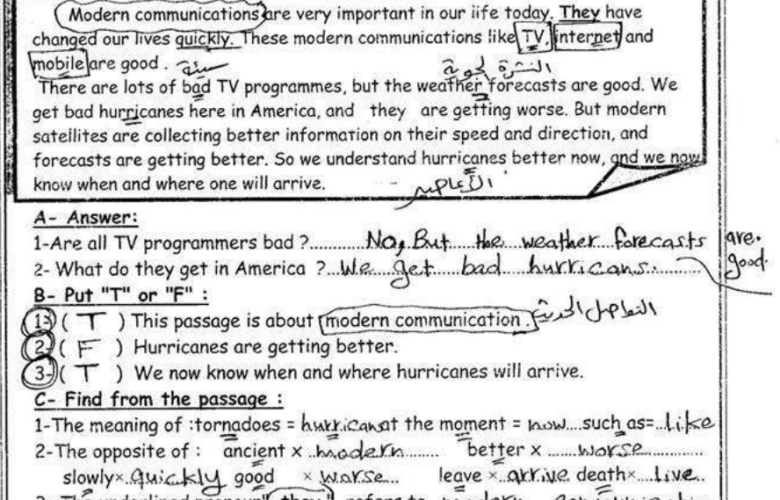 Modern communications are very important in our life today. They have
changed our lives quickly. These modern communications like TV, internet and
mobile are good .
سيئة النشرة الجوية
There are lots of bad TV programmes, but the weather forecasts are good. We
get bad hurricanes here in America, and they are getting worse. But modern
satellites are collecting better information on their speed and direction, and
forecasts are getting better. So we understand hurricanes better now, and we now
know when and where one will arrive. الأعاصير
A- Answer:
1-Are all TV programmers bad ?..........No, But the weather forecasts are.
2- What do they get in America ?..We get bad hurricans. good.
B- Put "T" or "F" :
1- ( T ) This passage is about modern communication . التواصل الحديثة
2- ( F ) Hurricanes are getting better.
3- ( T ) We now know when and where hurricanes will arrive.
C- Find from the passage :
1-The meaning of :tornadoes = hurricans at the moment = now....such as=..like
2-The opposite of : ancient x ..modern....... better x ......worse............
slowly×.quickly good × worse... leave ×..arrive death×...live..